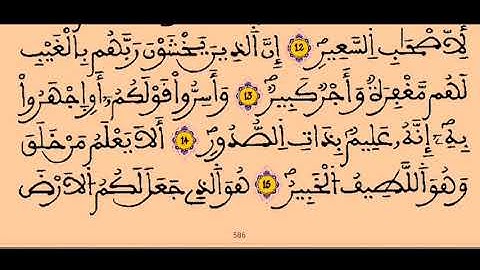 لِّأَصْحَٰبِ اِ۬لسَّعِيرِۖ 12 إِنَّ اَ۬لذِينَ يَخْشَوْنَ رَبَّهُم بِالْغَيْبِ
لَهُم مَّغْفِرَةٌ وَأَجْرٌ كَبِيرٌۖ 13 وَأَسِرُّواْ قَوْلَكُمُۥٓ أَوِ اِ۪جْهَرُواْ
بِهِۦٓ إِنَّهُۥ عَلِيمٌۢ بِذَاتِ اِ۬لصُّدُورِۖ 14 أَلَا يَعْلَمُ مَنْ خَلَقَ
وَهُوَ اَ۬للَّطِيفُ اُ۬لْخَبِيرُۖ 15 هُوَ اَ۬لذِے جَعَلَ لَكُمُ اُ۬لَارْضَ
586